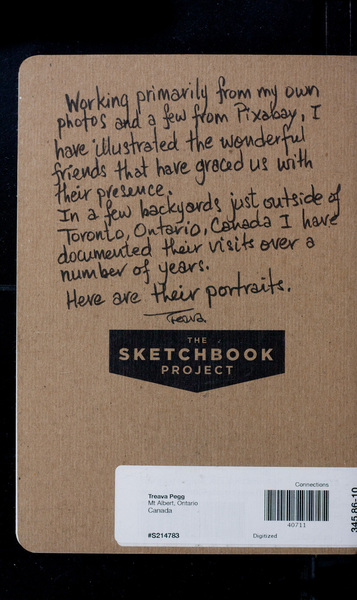 Working primarily from my own
photos and a few from Pixabay, I
have illustrated the wonderful
friends that have graced us with
their presence.
In a few backyards just outside of
Toronto, Ontario, Canada I have
documented their visits over a
number of years.
Here are their portraits.
Treava
THE
SKETCHBOOK
PROJECT
Connections
Treava Pegg
Mt Albert, Ontario
Canada
40711
#S214783
Digitized
345.86-10